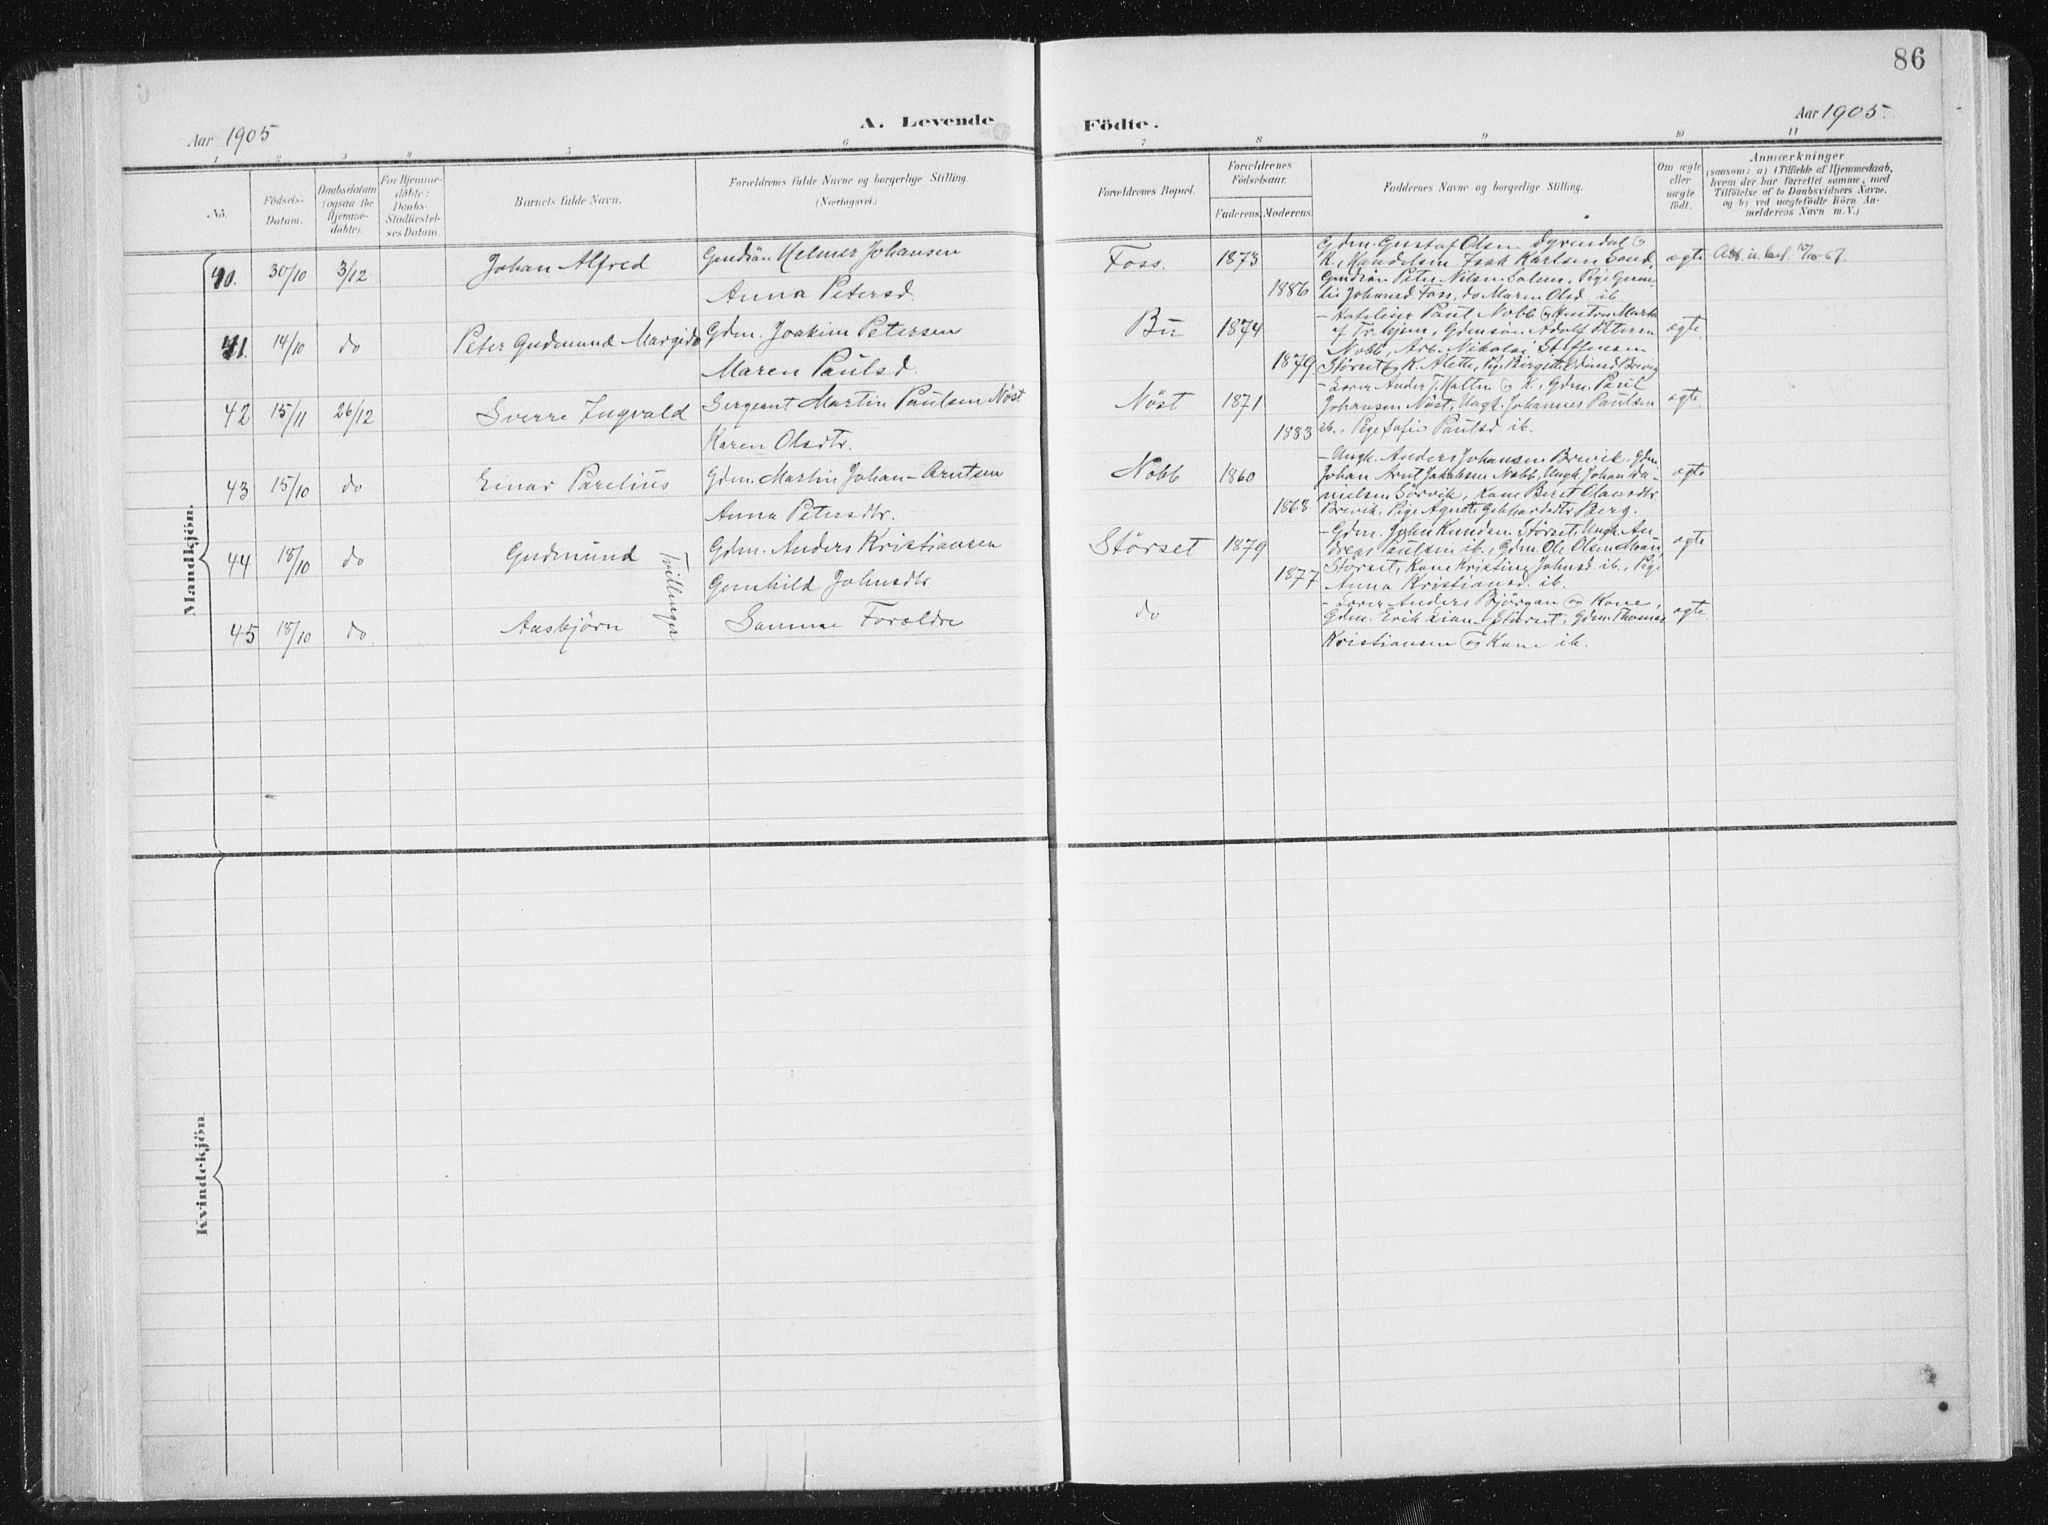 86
Aar 1905
A. Levende
Födte.
Aar 1905.
1 2 3 4 5 6
7 8 9 10 11
No.
Födsels-
Datum.
Daabsdatum
(ogsaa for
Hjemme-
döbte).
For Hjemme-
döbte:
Daabs-
Stadfæstel-
ses Datum.
Barnets fulde Navn.
Forældrenes fulde Navne og borgerlige Stilling.
(Næringsvei.)
Forældrenes Bopæl.
Forældrenes
Födselsaar.
Faderens. Moderens.
Faddernes Navne og borgerlige Stilling.
Om ægte
eller
uægte
födt.
Anmærkninger
(saasom: a) i Tilfælde af Hjemmedaab,
hvem der har forrettet samme, med
Tilföielse af to Daabsvidners Navne,
og b) ved uægtefödte Börn An-
melderens Navn m. V.)
Mandkjön.
40. 30/10 3/12 Johan Alfred
Helmer Johansen
Anna Petersd.
Foss. 1873
1886
Gdm. Gustaf Olsen Dyrendal
Isak Karlsen Sand,
Peter Nilsen Salem, Pige
Johansd. Foss, do Maren Olsd. ib.
ægte
41. 14/10 do Peter Gudmund Margido
Gdm. Joakim Petersen
Maren Paulsd.
Bu 1874
1879
Paul Nobb og
af Tr.hjem, Gdmsön Adolf Petersen
Nobb, Arb. Nikolai Steffensen
Störset og K. Alette, Brevig
ægte
42 15/11 26/12 Sverre Ingvald
Sergeant Martin Paulsen Nöst
Karen Olsdtr.
Nöst 1871
1883
- Lærer Anders og K., Gdm. Paul
Johansen Nöst, Ungk. Johannes Paulsen
ib., Pige Sofie Paulsd ib.
ægte
43 15/10 do Einar Parelius
Gdm. Martin Johan Arntsen
Anna Petersdtr.
Nobb 1860
1868
- Ungk. Anders Johansen Brevik, Gdm.
Johan Arnt Jakobsen Nobb, Ungk. Johan Da-
nielsen Sörvik, Kone Beret Olausdtr
Brevik, Pige Agnete Gebhardsdtr Berg.
ægte
44 18/10 do Gudmund
Tvillinger
Gdm. Anders Kristiansen
Gunhild Johnsdtr
Störset 1879
1877
- Gdm. John Knudsen Störset, Ungk. An-
dreas Paulsen ib., Gdm. Ole Olsen Moan,
Störset, Kone Kristine Johnsd. ib., Pige
Anna Kristiansd. ib.
ægte
45 18/10 do Aasbjörn
Samme Forældre
do
- Lærer Anders Björgan og Kone,
Gdm. Erik Lian Störset, Gdm. Thomas
Kristiansen og Kone ib.
ægte.
Kvindekjön.